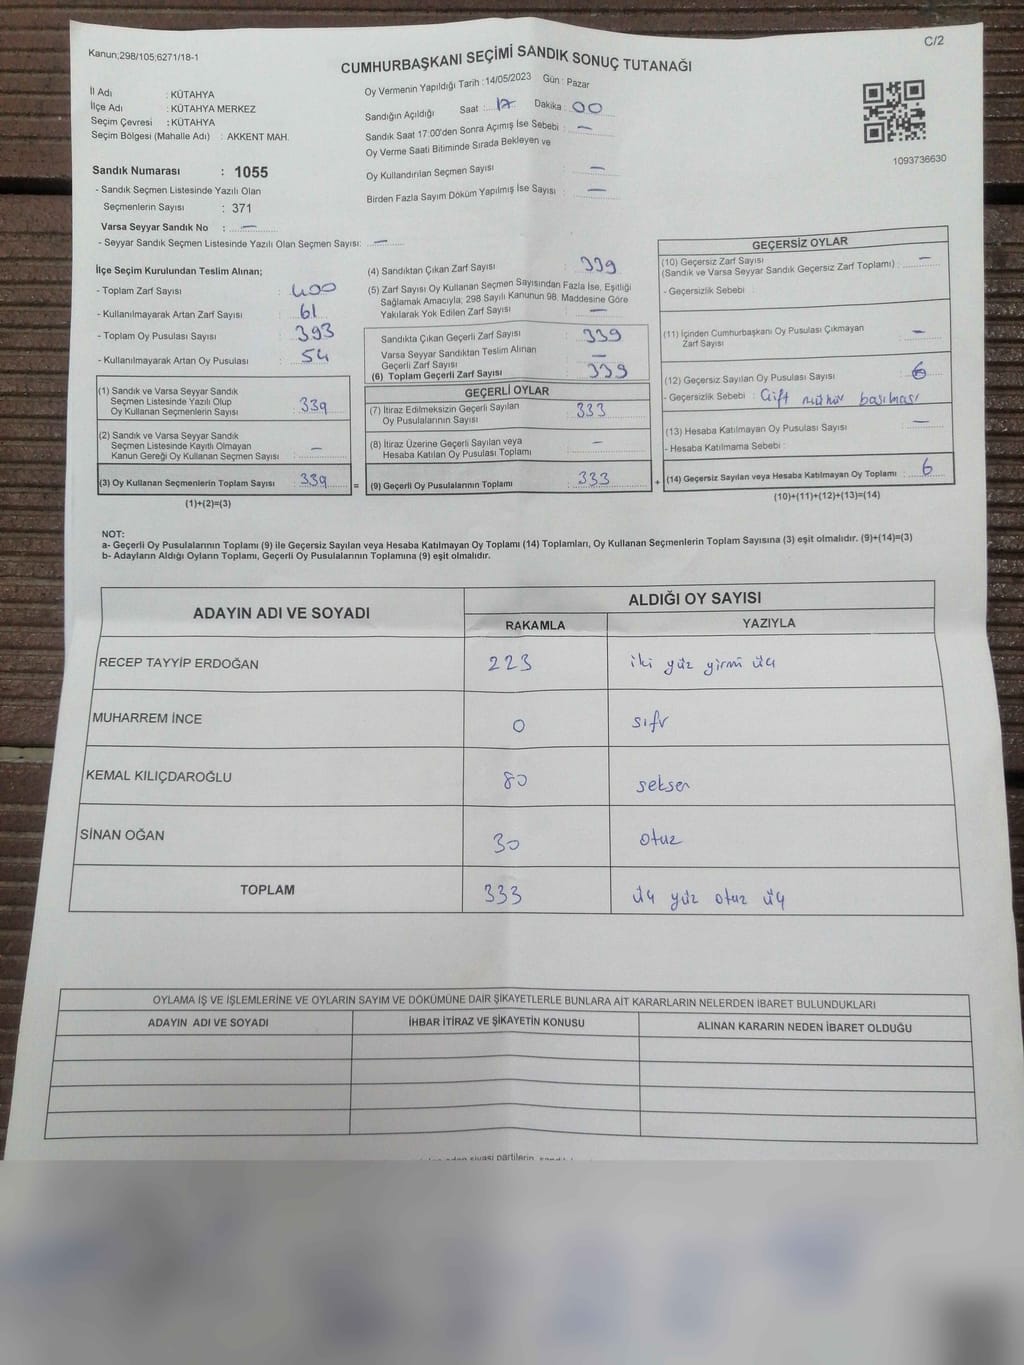 Kanun;298/105;6271/18-1
C/2
CUMHURBAŞKANI SEÇİMİ SANDIK SONUÇ TUTANAĞI
İl Adı : KÜTAHYA
İlçe Adı : KÜTAHYA MERKEZ
Seçim Çevresi : KÜTAHYA
Seçim Bölgesi (Mahalle Adı) : AKKENT MAH.
Oy Vermenin Yapıldığı Tarih : 14/05/2023 Gün : Pazar
Sandığın Açıldığı Saat : 17 Dakika : 00
Sandık Saat 17:00'den Sonra Açımış İse Sebebi : —
Oy Verme Saati Bitiminde Sırada Bekleyen ve
Oy Kullandırılan Seçmen Sayısı —
Birden Fazla Sayım Döküm Yapılmış İse Sayısı : —
1093736630
Sandık Numarası : 1055
- Sandık Seçmen Listesinde Yazılı Olan
Seçmenlerin Sayısı : 371
Varsa Seyyar Sandık No : —
- Seyyar Sandık Seçmen Listesinde Yazılı Olan Seçmen Sayısı: —
İlçe Seçim Kurulundan Teslim Alınan;
- Toplam Zarf Sayısı : 400
- Kullanılmayarak Artan Zarf Sayısı : 61
- Toplam Oy Pusulası Sayısı : 393
- Kullanılmayarak Artan Oy Pusulası : 54
(1) Sandık ve Varsa Seyyar Sandık
Seçmen Listesinde Yazılı Olup
Oy Kullanan Seçmenlerin Sayısı : 339
(2) Sandık ve Varsa Seyyar Sandık
Seçmen Listesinde Kayıtlı Olmayan
Kanun Gereği Oy Kullanan Seçmen Sayısı : —
(3) Oy Kullanan Seçmenlerin Toplam Sayısı : 339
(1)+(2)=(3)
=
(4) Sandıktan Çıkan Zarf Sayısı : 339
(5) Zarf Sayısı Oy Kullanan Seçmen Sayısından Fazla İse, Eşitliği
Sağlamak Amacıyla; 298 Sayılı Kanunun 98. Maddesine Göre
Yakılarak Yok Edilen Zarf Sayısı : —
Sandıkta Çıkan Geçerli Zarf Sayısı : 339
Varsa Seyyar Sandıktan Teslim Alınan
Geçerli Zarf Sayısı : —
(6) Toplam Geçerli Zarf Sayısı : 339
GEÇERLİ OYLAR
(7) İtiraz Edilmeksizin Geçerli Sayılan
Oy Pusulalarının Sayısı : 333
(8) İtiraz Üzerine Geçerli Sayılan veya
Hesaba Katılan Oy Pusulası Toplamı : —
(9) Geçerli Oy Pusulalarının Toplamı : 333
+
GEÇERSİZ OYLAR
(10) Geçersiz Zarf Sayısı
(Sandık ve Varsa Seyyar Sandık Geçersiz Zarf Toplamı) : —
- Geçersizlik Sebebi :
(11) İçinden Cumhurbaşkanı Oy Pusulası Çıkmayan
Zarf Sayısı : —
(12) Geçersiz Sayılan Oy Pusulası Sayısı : 6
- Geçersizlik Sebebi : Çift mühür basılması
(13) Hesaba Katılmayan Oy Pusulası Sayısı : —
- Hesaba Katılmama Sebebi :
(14) Geçersiz Sayılan veya Hesaba Katılmayan Oy Toplamı : 6
(10)+(11)+(12)+(13)=(14)
NOT:
a- Geçerli Oy Pusulalarının Toplamı (9) ile Geçersiz Sayılan veya Hesaba Katılmayan Oy Toplamı (14) Toplamları, Oy Kullanan Seçmenlerin Toplam Sayısına (3) eşit olmalıdır. (9)+(14)=(3)
b- Adayların Aldığı Oyların Toplamı, Geçerli Oy Pusulalarının Toplamına (9) eşit olmalıdır.
ADAYIN ADI VE SOYADI ALDIĞI OY SAYISI
RAKAMLA YAZIYLA
RECEP TAYYİP ERDOĞAN 223 iki yüz yirmi üç
MUHARREM İNCE 0 sıfır
KEMAL KILIÇDAROĞLU 80 seksen
SİNAN OĞAN 30 otuz
TOPLAM 333 üç yüz otuz üç
OYLAMA İŞ VE İŞLEMLERİNE VE OYLARIN SAYIM VE DÖKÜMÜNE DAİR ŞİKAYETLERLE BUNLARA AİT KARARLARIN NELERDEN İBARET BULUNDUKLARI
ADAYIN ADI VE SOYADI İHBAR İTİRAZ VE ŞİKAYETİN KONUSU ALINAN KARARIN NEDEN İBARET OLDUĞU
siyasi partilerin,